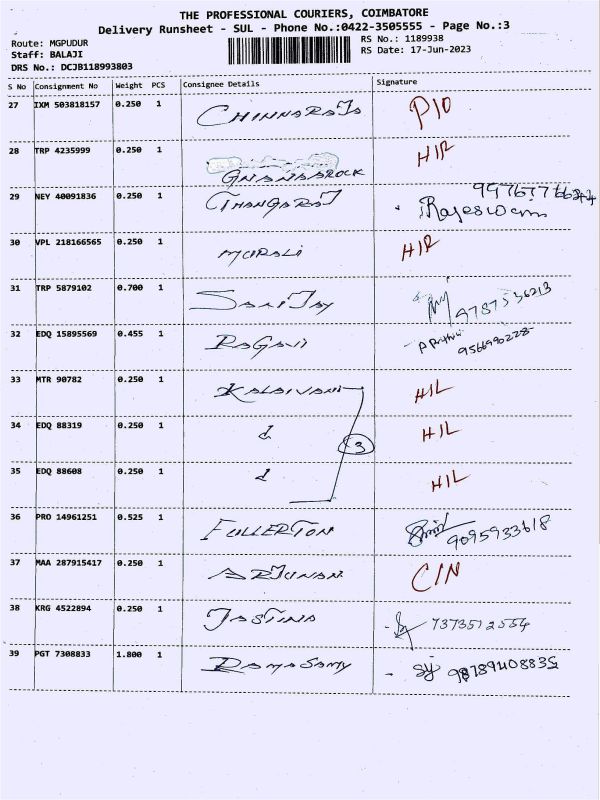 THE PROFESSIONAL COURIERS, COIMBATORE
Delivery Runsheet - SUL - Phone No.:0422-3505555 - Page No.:3
Route: MGPUDUR
Staff: BALAJI
DRS No.: DCJB118993803
RS No.: 1189938
RS Date: 17-Jun-2023
S No Consignment No Weight PCS Consignee Details Signature
27 IXM 503818157 0.250 1 CHINNARAJA P10
28 TRP 4235999 0.250 1 GNANABROCK HIR
29 NEY 40091836 0.250 1 THANGARAJ Rajeswari
30 VPL 218166565 0.250 1 MURALI HIR
31 TRP 5879102 0.700 1 SANJJAY 9787536213
32 EDQ 15895569 0.455 1 RAGAVI 9566990228
33 MTR 90782 0.250 1 KALAIVANI HIL
34 EDQ 88319 0.250 1 d 3 HIL
35 EDQ 88608 0.250 1 d HIL
36 PRO 14961251 0.525 1 FULLERTON 9095933618
37 MAA 287915417 0.250 1 ARJUNAN CIN
38 KRG 4522894 0.250 1 JASTINA 7373512554
39 PGT 7308833 1.800 1 RAMASAMY 98789408835